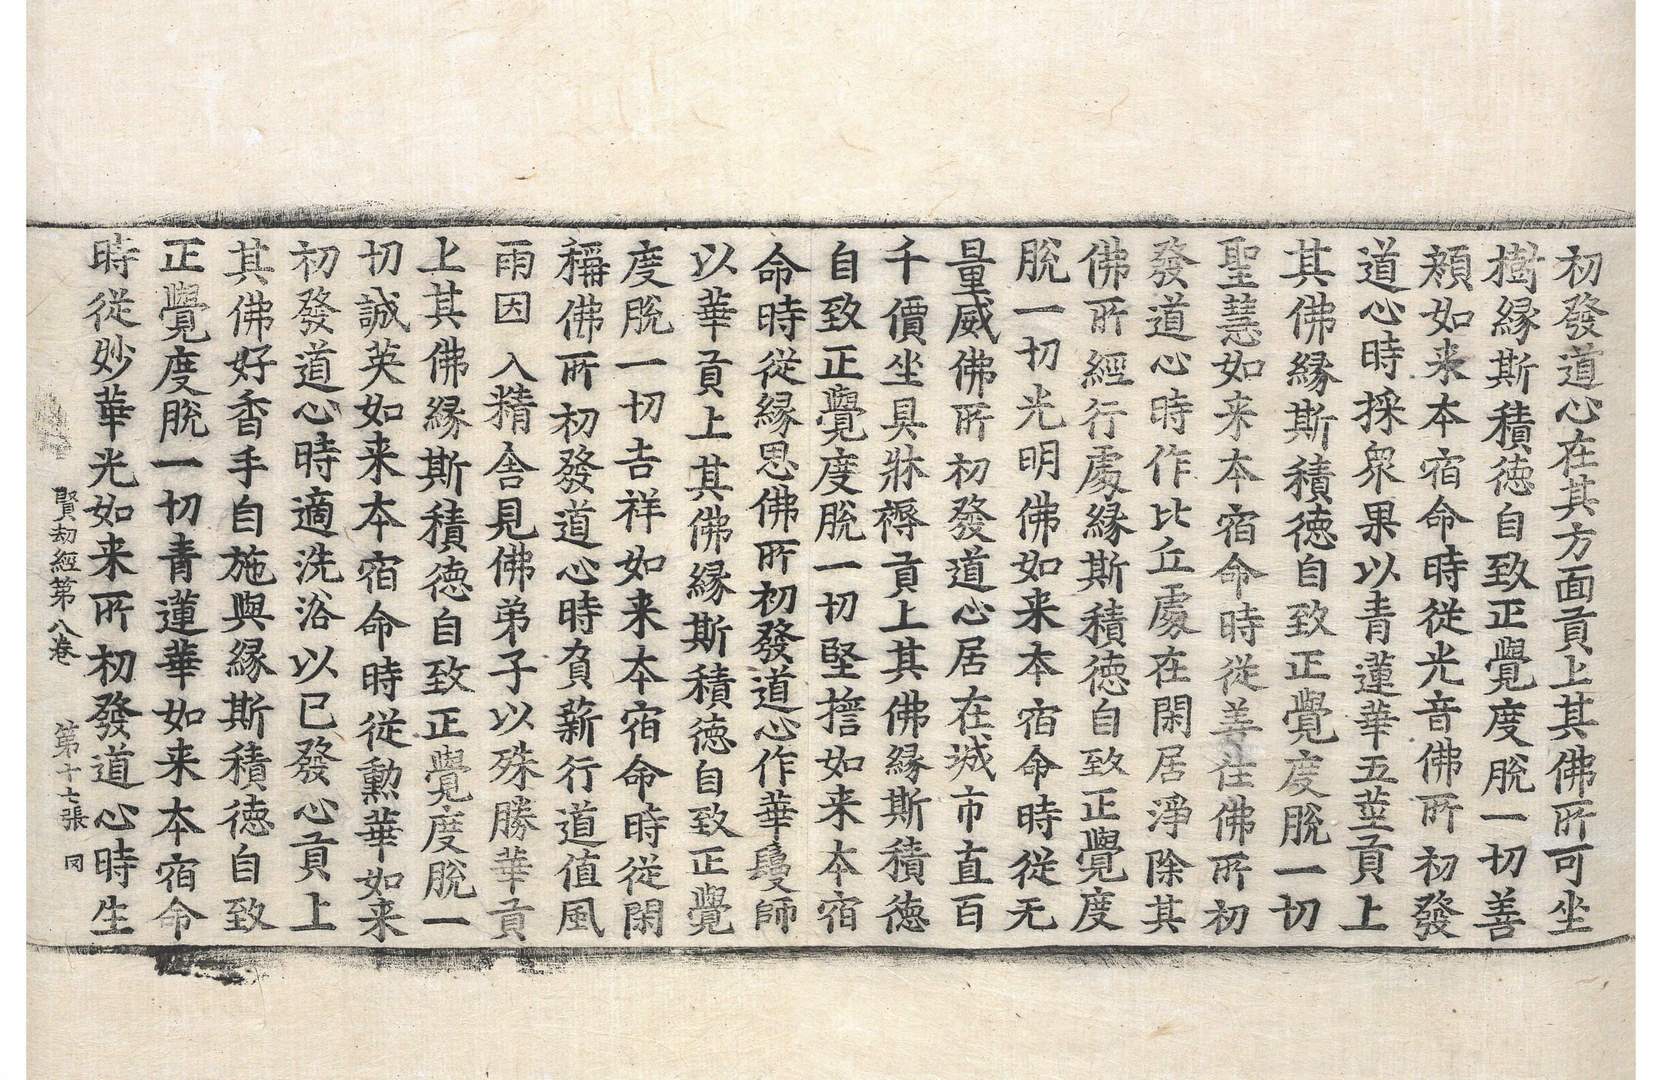 初發道心在其方面貢上其佛所可坐
樹緣斯積德自致正覺度脫一切善
頰如来本宿命時從光音佛所初發
道心時採衆果以青蓮華五莖貢上
其佛緣斯積德自致正覺度脫一切
聖慧如来本宿命時從善住佛所初
發道心時作比丘處在閑居淨除其
佛所經行處緣斯積德自致正覺度
脫一切光明佛如来本宿命時從无
量威佛所初發道心居在城市直百
千價坐具牀褥貢上其佛緣斯積德
自致正覺度脫一切堅擔如来本宿
命時從緣思佛所初發道心作華鬘師
以華貢上其佛緣斯積德自致正覺
度脫一切吉祥如来本宿命時從閑
稱佛所初發道心時負薪行道值風
雨因入精舍見佛弟子以殊勝華貢
上其佛緣斯積德自致正覺度脫一
切誠英如来本宿命時從勳華如来
初發道心時適洗浴以已發心貢上
其佛好香手自施與緣斯積德自致
正覺度脫一切青蓮華如来本宿命
時從妙華光如来所初發道心時生
賢劫經第八卷 第十七張